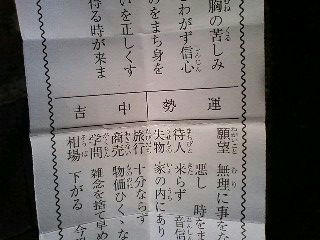 胸の苦しみ
とわがず信心
のをまち身を
いを正しくす
得る時が来ま
運勢
中吉
願望 無理に事をな
悪し 時をま
待人 来らず 音信
失物 家の内にあり
旅行 十分ならず
商売 物価ひくゝな
学問 雑念を捨て早め
相場 下がる 今